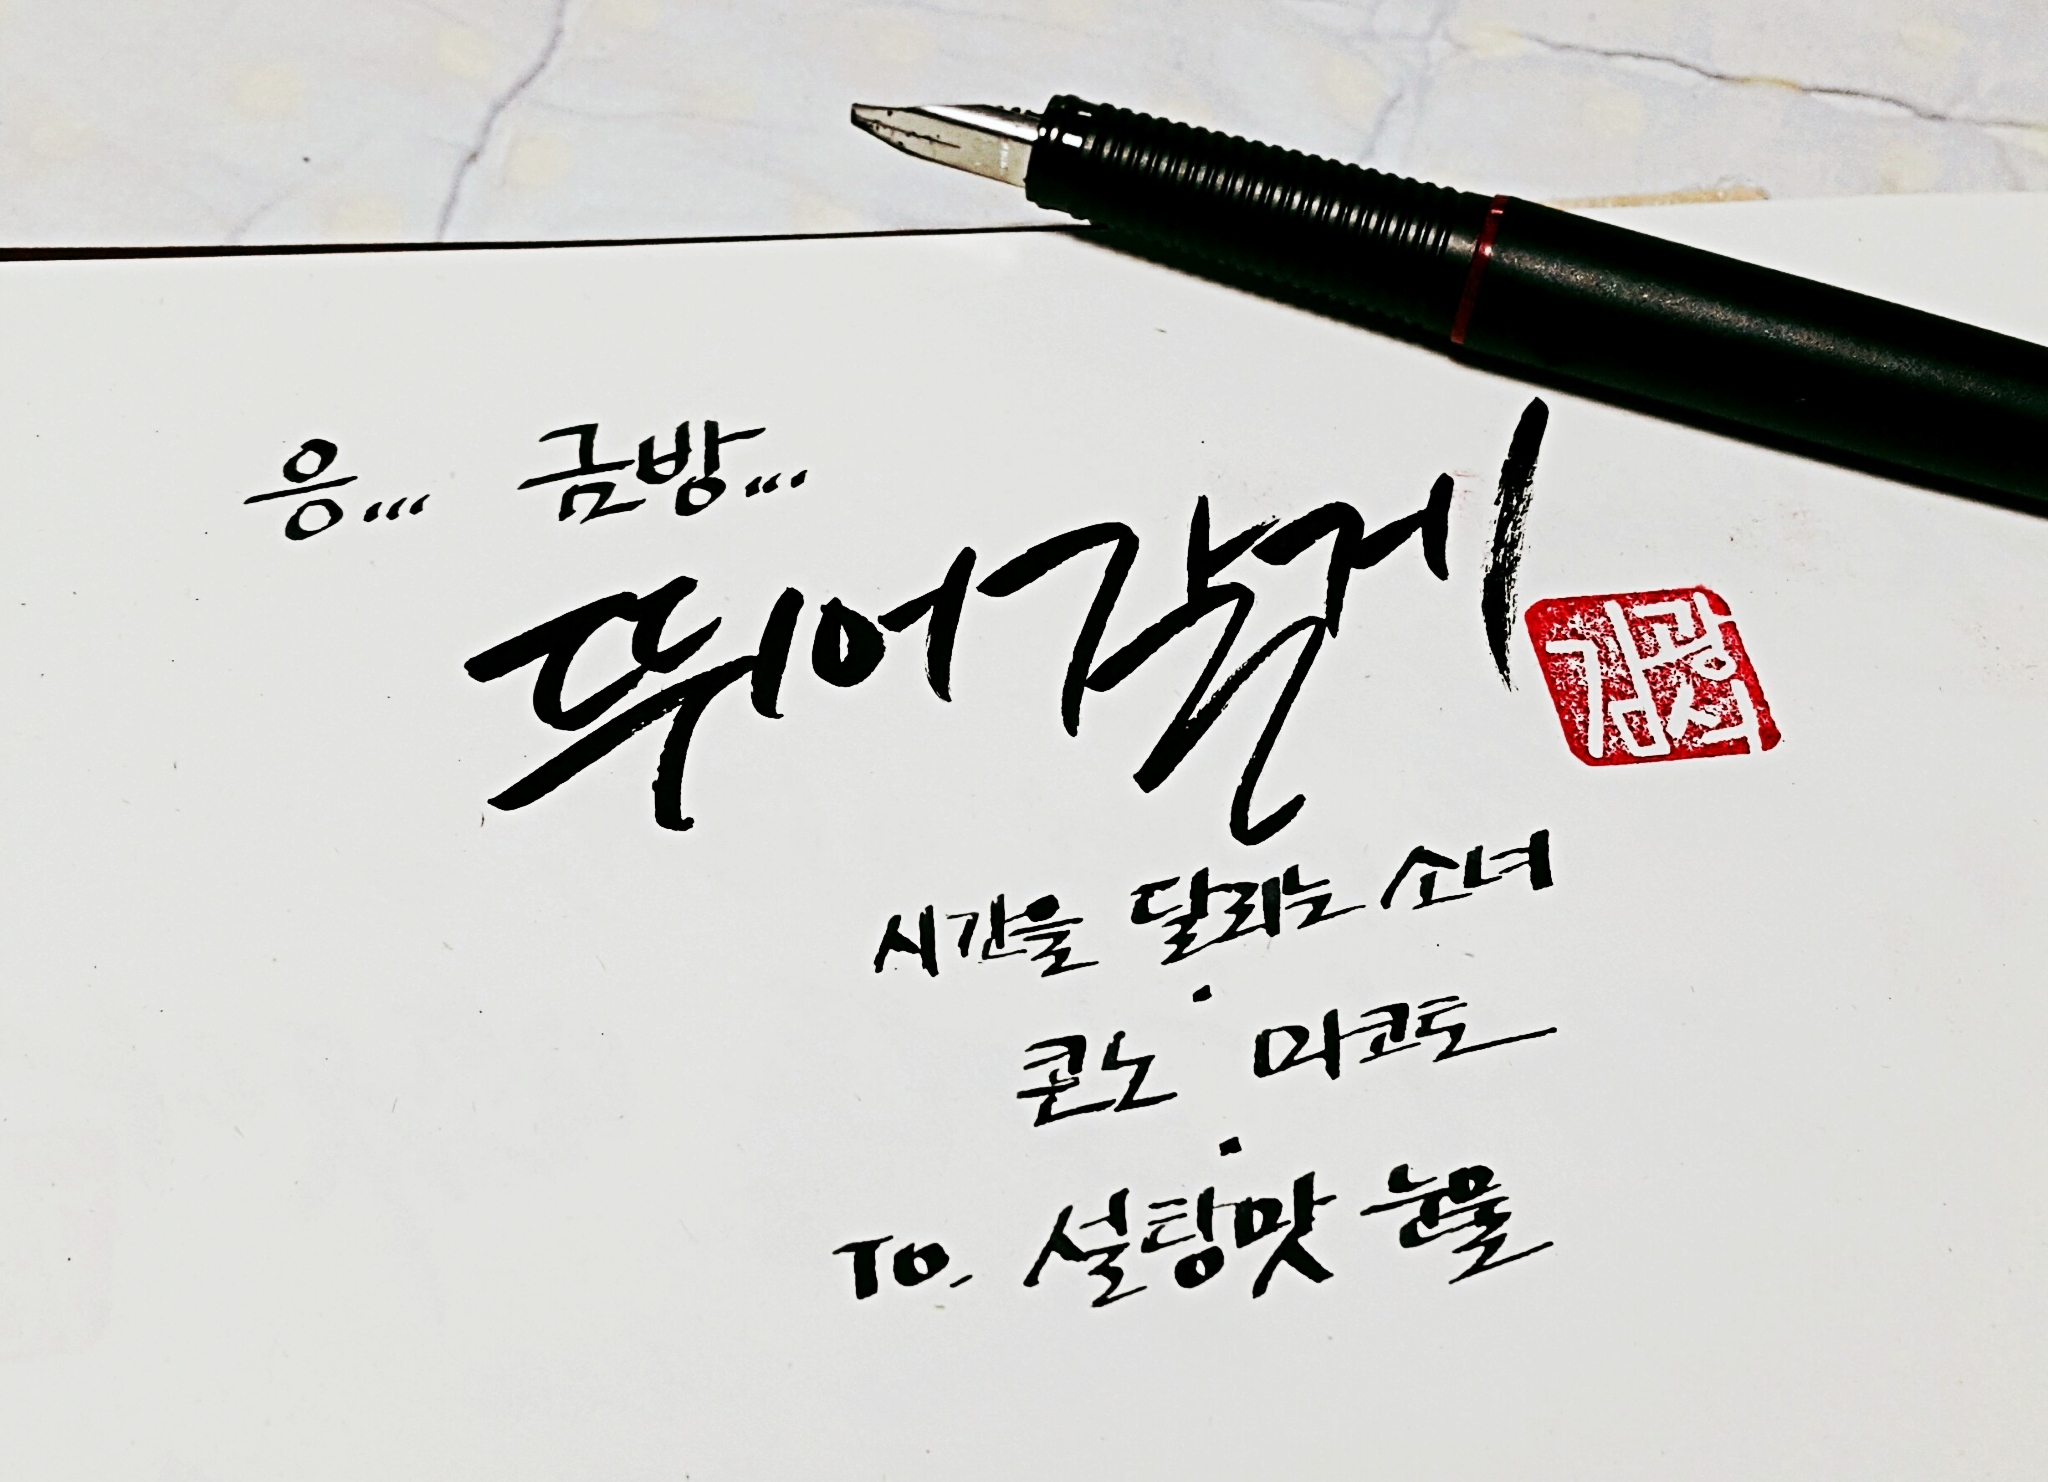 응... 금방...
뛰어갈게
김광석
시간을 달리는 소녀
·
콘노 마코토
·
To. 설탕맛 눈물